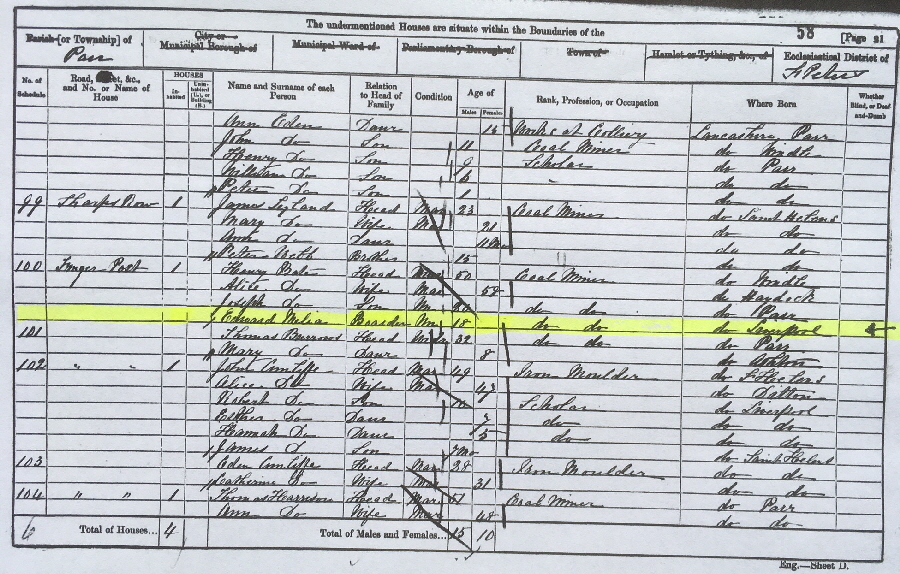 The undermentioned Houses are situate within the Boundaries of the
58 [Page 21
Parish [or Township] of
Parr
City or Municipal Borough of
Municipal Ward of
Parliamentary Borough of
Town of
Hamlet or Tything, &c., of
Ecclesiastical District of
St Peters
No. of Schedule
Road, Street, &c., and No. or Name of House
HOUSES
Inhabited
Name and Surname of each Person
Relation to Head of Family
Condition
Age of
Males Females
Rank, Profession, or Occupation
Where Born
Whether Blind, or Deaf-and-Dumb
Ann Eden Daur 14 Works at Colliery Lancashire Parr
John Do Son 11 Coal Miner do Windle
Henry Do Son 9 Scholar do Parr
William Do Son 6 " do do
Peter Do Son 1 do do
99 Sharps Row 1 James Head Mar 23 Coal Miner do Saint Helens
Mary Do Wife Mar 21 do do
Ann Do Daur 11 Mo do do
Peter Brother 15 do do
100 1 Henry Head Mar 50 Coal Miner do Windle
Alice Do Wife Mar do Haydock
Joseph Do Son Un 20 do do do Parr
Edward Melia Boarder Un 18 do do do Liverpool
101 Thomas Burrows Head 32 do do do Parr
Mary Do Daur 8 do Ashton
102 " " 1 John Cunliffe Head Mar 49 Iron Moulder do St Helens
Alice Do Wife Mar 43 do Ditton
Robert Do Son Scholar do Liverpool
Esther Do Daur 7 do do do
Hannah Do Daur 5 do do do
James Do Son Mo do Saint Helens
103 Eden Cunliffe Head Mar 28 Iron Moulder do do
Catherine Do Wife Mar 31 do do
104 " " 1 Thomas Harrison Head Mar 51 Coal Miner do Parr
Ann Do Wife Mar 48 do do
6 Total of Houses... 4 Total of Males and Females... 15 10
Eng.—Sheet D.